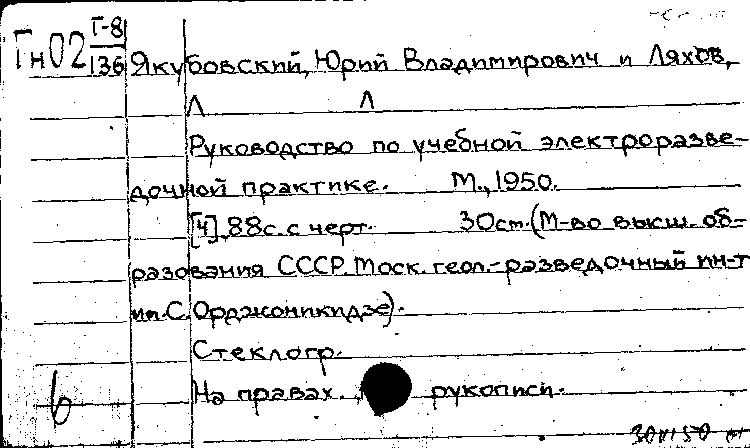 Гн02 Г-8/136
Якубовский, Юрий Владимирович и Ляхов,
Л Л
Руководство по учебной электроразве-
дочной практике. М., 1950.
[4], 88с. с черт. 30см. (М-во высш. об-
разования СССР. Моск. геол.-разведочный ин-т
им. С. Орджоникидзе).
Стеклогр.
На правах рукописи.
б